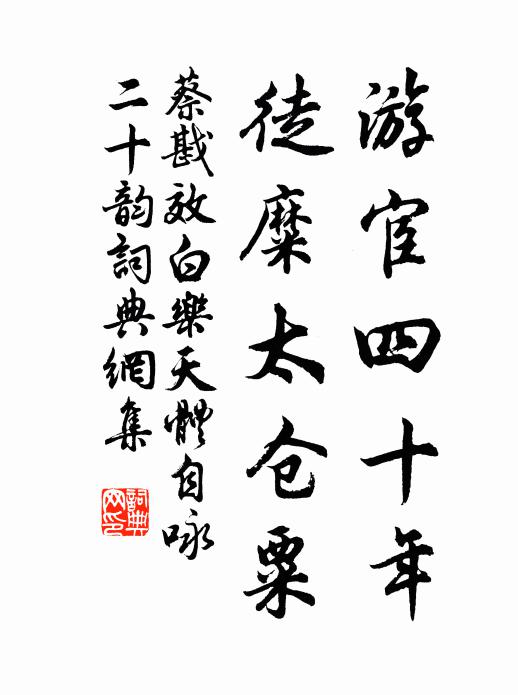 游宦四十年
徒糜太仓粟
蔡戡效白樂天體自咏
二十韵詞典網集
詞典网印